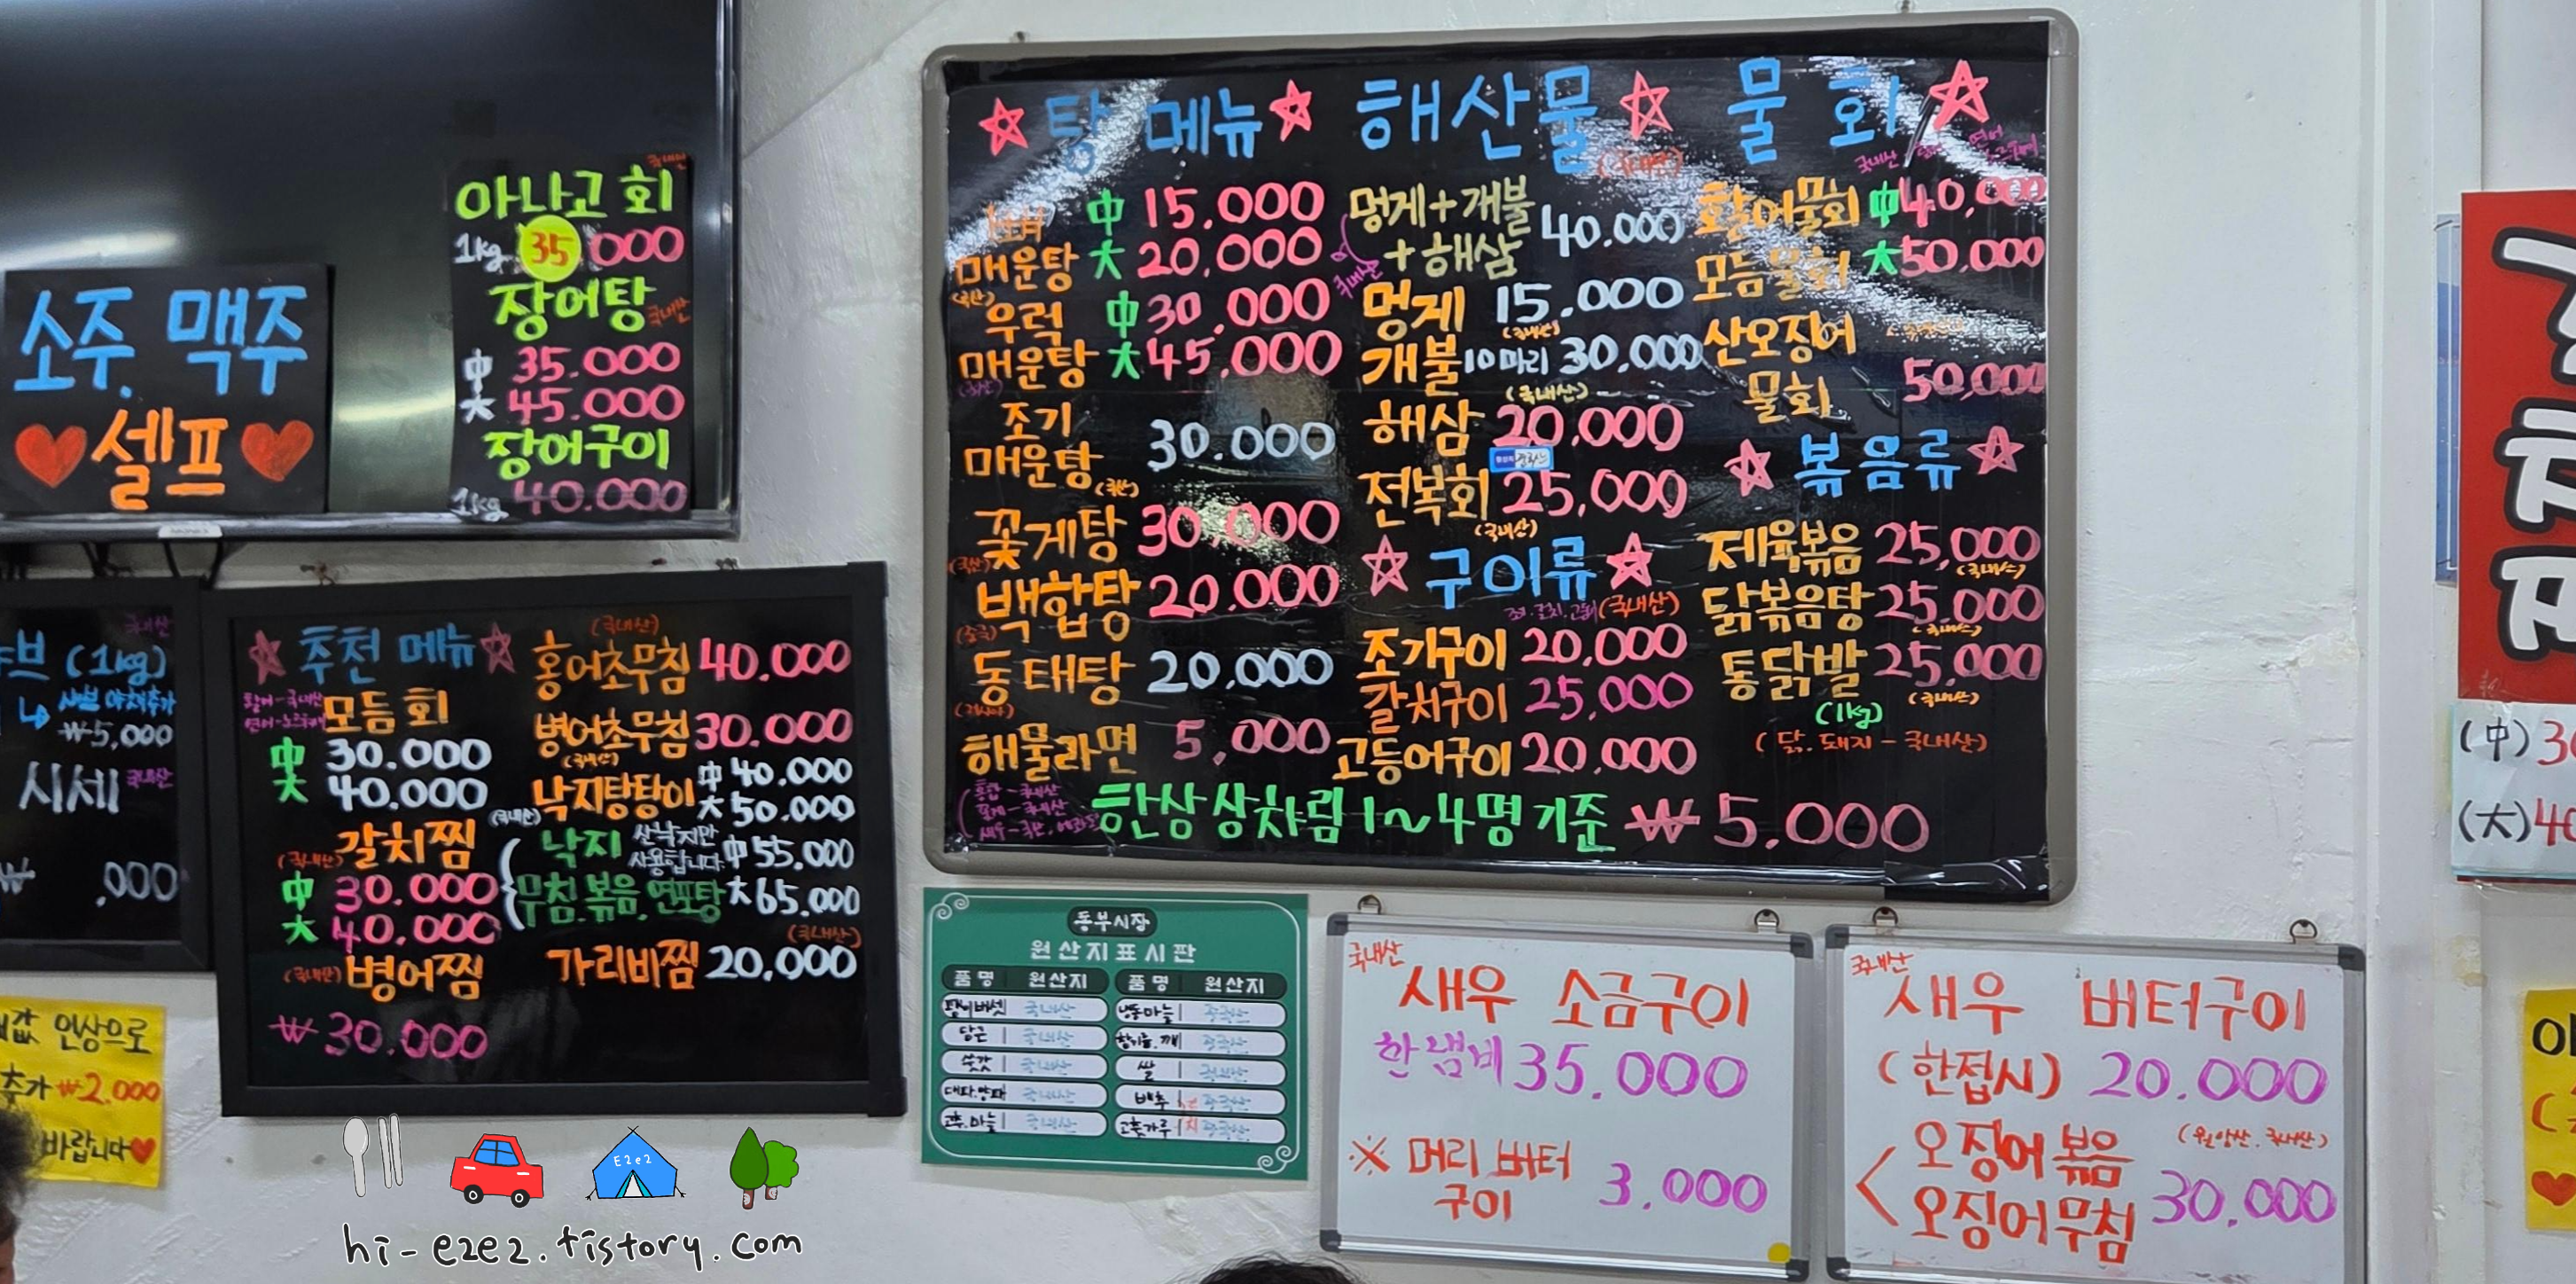 소주. 맥주
셀프
국내산
아나고 회
1kg 35 000
장어탕
국내산
中 35.000
大 45.000
장어구이
1kg 40.000
국내산
브 (1kg)
샤브 야채추가
₩5,000
시세 국내산
₩ ,000
값 인상으로
추가 ₩2.000
바랍니다
추천 메뉴
모듬회
中 30.000
大 40.000
(국내산) 갈치찜
中 30.000
大 40.000
(국내산) 병어찜
₩30.000
(국내산)
홍어초무침 40.000
병어초무침 30.000
(국내산)
낙지탕탕이 中 40.000
大 50.000
(국내산) 낙지 산낙지만 사용합니다. 中 55.000
무침.볶음.연포탕 大 65.000
(국내산)
가리비찜 20,000
탕 메뉴
中 15.000
매운탕 大 20.000
우럭 中 30.000
매운탕 大 45,000
조기
매운탕 30.000
꽃게탕 30,000
백합탕 20.000
동태탕 20,000
해물라면 5,000
해산물
(국내산)
멍게+개불
+해삼 40.000
국내산
멍게 15.000
(국내산)
개불 10마리 30.000
(국내산)
해삼 20,000
전복회 25,000
(국내산)
구이류
(국내산)
조기구이 20,000
갈치구이 25,000
고등어구이 20.000
물회
국내산
활어물회 中 40,000
모듬물회 大 50,000
산오징어
물회 50,000
볶음류
제육볶음 25,000
(국내산)
닭볶음탕 25.000
(국내산)
통닭발 25,000
(1kg) (국내산)
(닭.돼지-국내산)
한상 상차림 1~4명 기준 ₩5,000
동부시장
원산지표시판
품명 원산지 품명 원산지
팽이버섯 국내산 냉동마늘 중국산
당근 국내산
쑥갓 국내산 쌀 국내산
대파.양파 국내산 배추
고추.마늘 국내산 고춧가루 중국산
국내산
새우 소금구이
한냄비 35.000
※ 머리 버터
구이 3.000
국내산
새우 버터구이
(한접시) 20.000
오징어볶음 (원양산.국내산)
오징어무침 30.000
(中) 3
(大) 40
hi-e2e2.tistory.com
E2e2